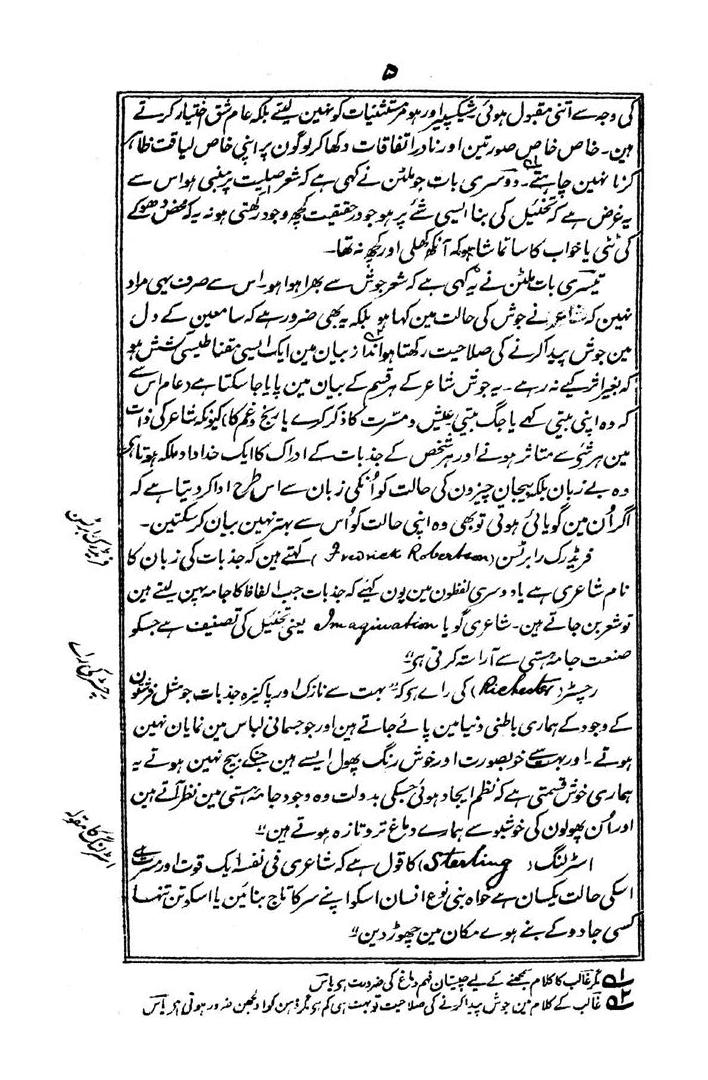 ۵
کی وجہ سے اتنی مقبول ہوئی شیکسپیر اور ہومر مستثنیات کو نہین لیتے بلکہ عام شق اختیار کرتے
ہین۔ خاص خاص صورتین اور نادر اتفاقات دکھا کر لوگون پر اپنی خاص لیاقت ظاہر
کرنا نہین چاہتے۔ دوسری بات جو ملٹن نے کہی ہے کہ شعر اصلیت پر مبنی ہو اس سے
یہ غرض ہے کہ تخئیل کی بنا ایسی شے پر ہو جو درحقیقت کچھ وجود رکھتی ہو نہ یہ کہ محض دھوکے
کی ٹٹی یا خواب کا سا تماشا ہو کہ آنکھ کھلی اور کچھ نہ تھا۔
تیسری بات ملٹن نے یہ کہی ہے کہ شعر جوش سے بھرا ہوا ہو۔ اس سے صرف یہی مراد
نہین کہ شاعر نے جوش کی حالت مین کہا ہو بلکہ یہ بھی ضرور ہے کہ سامعین کے دل
مین جوش پیدا کرنے کی صلاحیت رکھتا ہو انداز بیان مین ایک ایسی مقناطیسی کشش ہو
کہ بغیر اثر کیے نہ رہے۔ یہ جوش شاعر کے ہر قسم کے بیان مین پایا جا سکتا ہے (عام اس سے
کہ وہ اپنی بیتی کہے یا جگ بیتی عیش و مسرت کا ذکر کرے یا رنج و غم کا) کیونکہ شاعر کی ذات
مین ہر شئی سے متاثر ہونے اور ہر شخص کے جذبات کے ادراک کا ایک خداداد ملکہ ہوتا ہے
وہ بے زبان بلکہ بیجان چیزون کی حالت کو اُنکی زبان سے اس طرح ادا کر دیتا ہے کہ
اگر اُن مین گویائی ہوتی تو بھی وہ اپنی حالت کو اُس سے بہتر نہین بیان کر سکتین۔
فریڈرک رابرٹسن (Fredrick Robertson) کہتے ہین کہ جذبات کی زبان کا
نام شاعری ہے یا دوسری لفظون مین یون کہیے کہ جذبات جب الفاظ کا جامہ پہن لیتے ہین
تو شعر بن جاتے ہین۔ شاعری گویا Imagination یعنی تخئیل کی تصنیف ہے جسکو
صنعت جامہ ہستی سے آراستہ کرتی ہو"
رچسٹر (Richester) کی راے ہو کہ "بہت سے نازک اور پاکیزہ جذبات جو مثل فرشتون
کے وجود کے ہماری باطنی دنیا مین پائے جاتے ہین اور جو جسمانی لباس مین نمایان نہین
ہوتے۔ اور بہت سے خوبصورت اور خوش رنگ پھول ایسے ہین جنکے بیج نہین ہوتے یہ
ہماری خوش قسمتی ہے کہ نظم ایجاد ہوئی جسکی بدولت وہ وجود جامہ ہستی مین نظر آتے ہین
اور اُن پھولون کی خوشبو سے ہمارے دماغ تر و تازہ ہوتے ہین"
اسٹرلنگ (Sterling) کا قول ہے کہ شاعری فی نفسہ ایک قوت اور مسرت ہے
اسکی حالت یکسان ہے خواہ بنی نوع انسان اسکو اپنے سر کا تاج بنائین یا اسکو تن تنہا
کسی جادو کے بنے ہوے مکان مین چھوڑ دین"
فریڈرک رابرٹسن
رچسٹر کی راے
اسٹرلنگ کا مقولہ
۱ مگر غالب کا کلام سمجھنے کے لیے چیستان فہم دماغ کی ضرورت ہو یاس
۲ غالب کے کلام مین جوش پیدا کرنے کی صلاحیت تو بہت ہی کم ہو مگر ذہن کو اُلجھن ضرور ہوتی ہو یاس